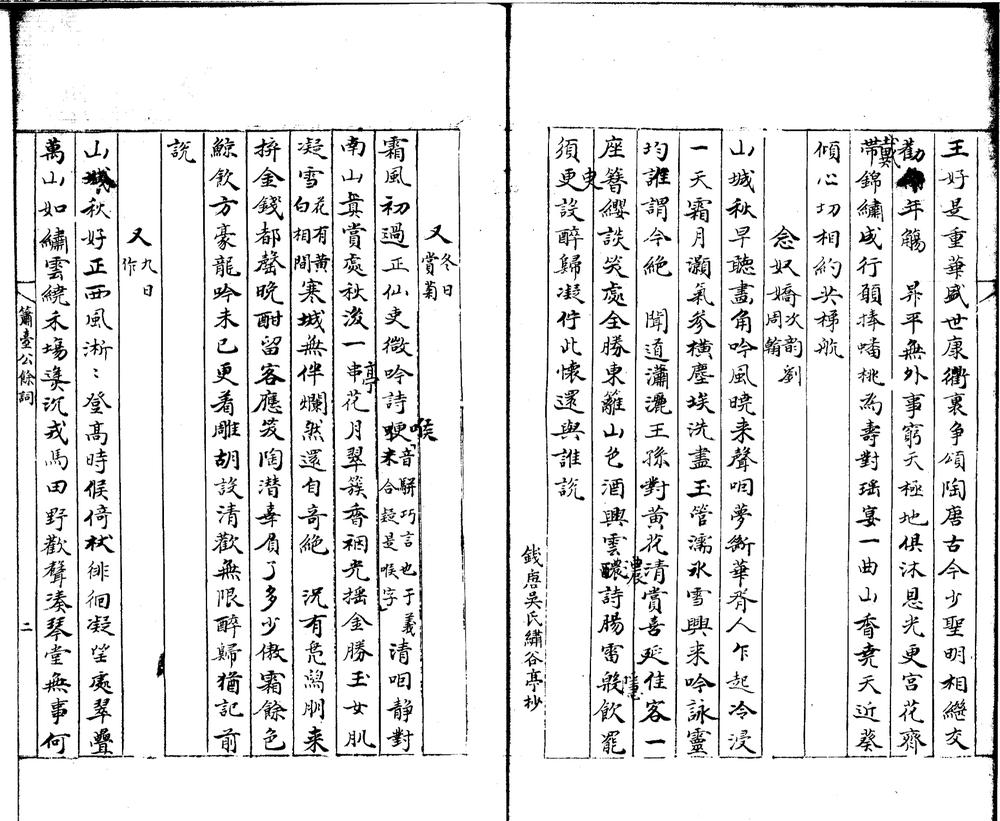 王好是重華盛世康衢裏争頌陶唐古今少聖明相繼交
勸年觴　昇平無外事窮天極地俱沐恩光更宮花齊
戴
帶錦繡成行願捧蟠桃為壽對瑶宴一曲山香堯天近葵
傾心切相約共梯航
念奴嬌次韵劉周翰
山城秋早聽畫角吟風曉来聲咽夢斷華胥人乍起冷浸
一天霜月灝氣參橫塵埃洗盡玉管濡氷雪興来吟詠靈
均誰謂今絕　聞道瀟灑王孫對黄花清賞喜延佳客一
座簪纓談笑處全勝東籬山色酒興雲濃詩腸雷殷飲罷
濃
隱
須更設醉歸凝佇此懷還與誰説
叓
錢唐吳氏繡谷亭抄
又冬日賞菊
霜風初過正仙吏微吟詩哽音駢巧言也于義未合疑是喉字清咽静對
喉
南山真賞處秋浚一串花月翠簇香裀光摇金勝玉女肌
亭
凝雪花有黄白相間寒城無伴爛然還自奇絕　況有凫舄朋来
拚金錢都罄晚酎留客應笑陶潛辜負了多少傲霜餘色
鯨飲方豪龍吟未已更着雕胡設清歡無限醉歸猶記前
説
又九日作
山城秋好正西風淅〻登髙時候倚杖徘徊凝望處翠疊
萬山如繡雲繞禾塲溪沉戎馬田野歡聲凑琴堂無事何
簫臺公餘詞
二